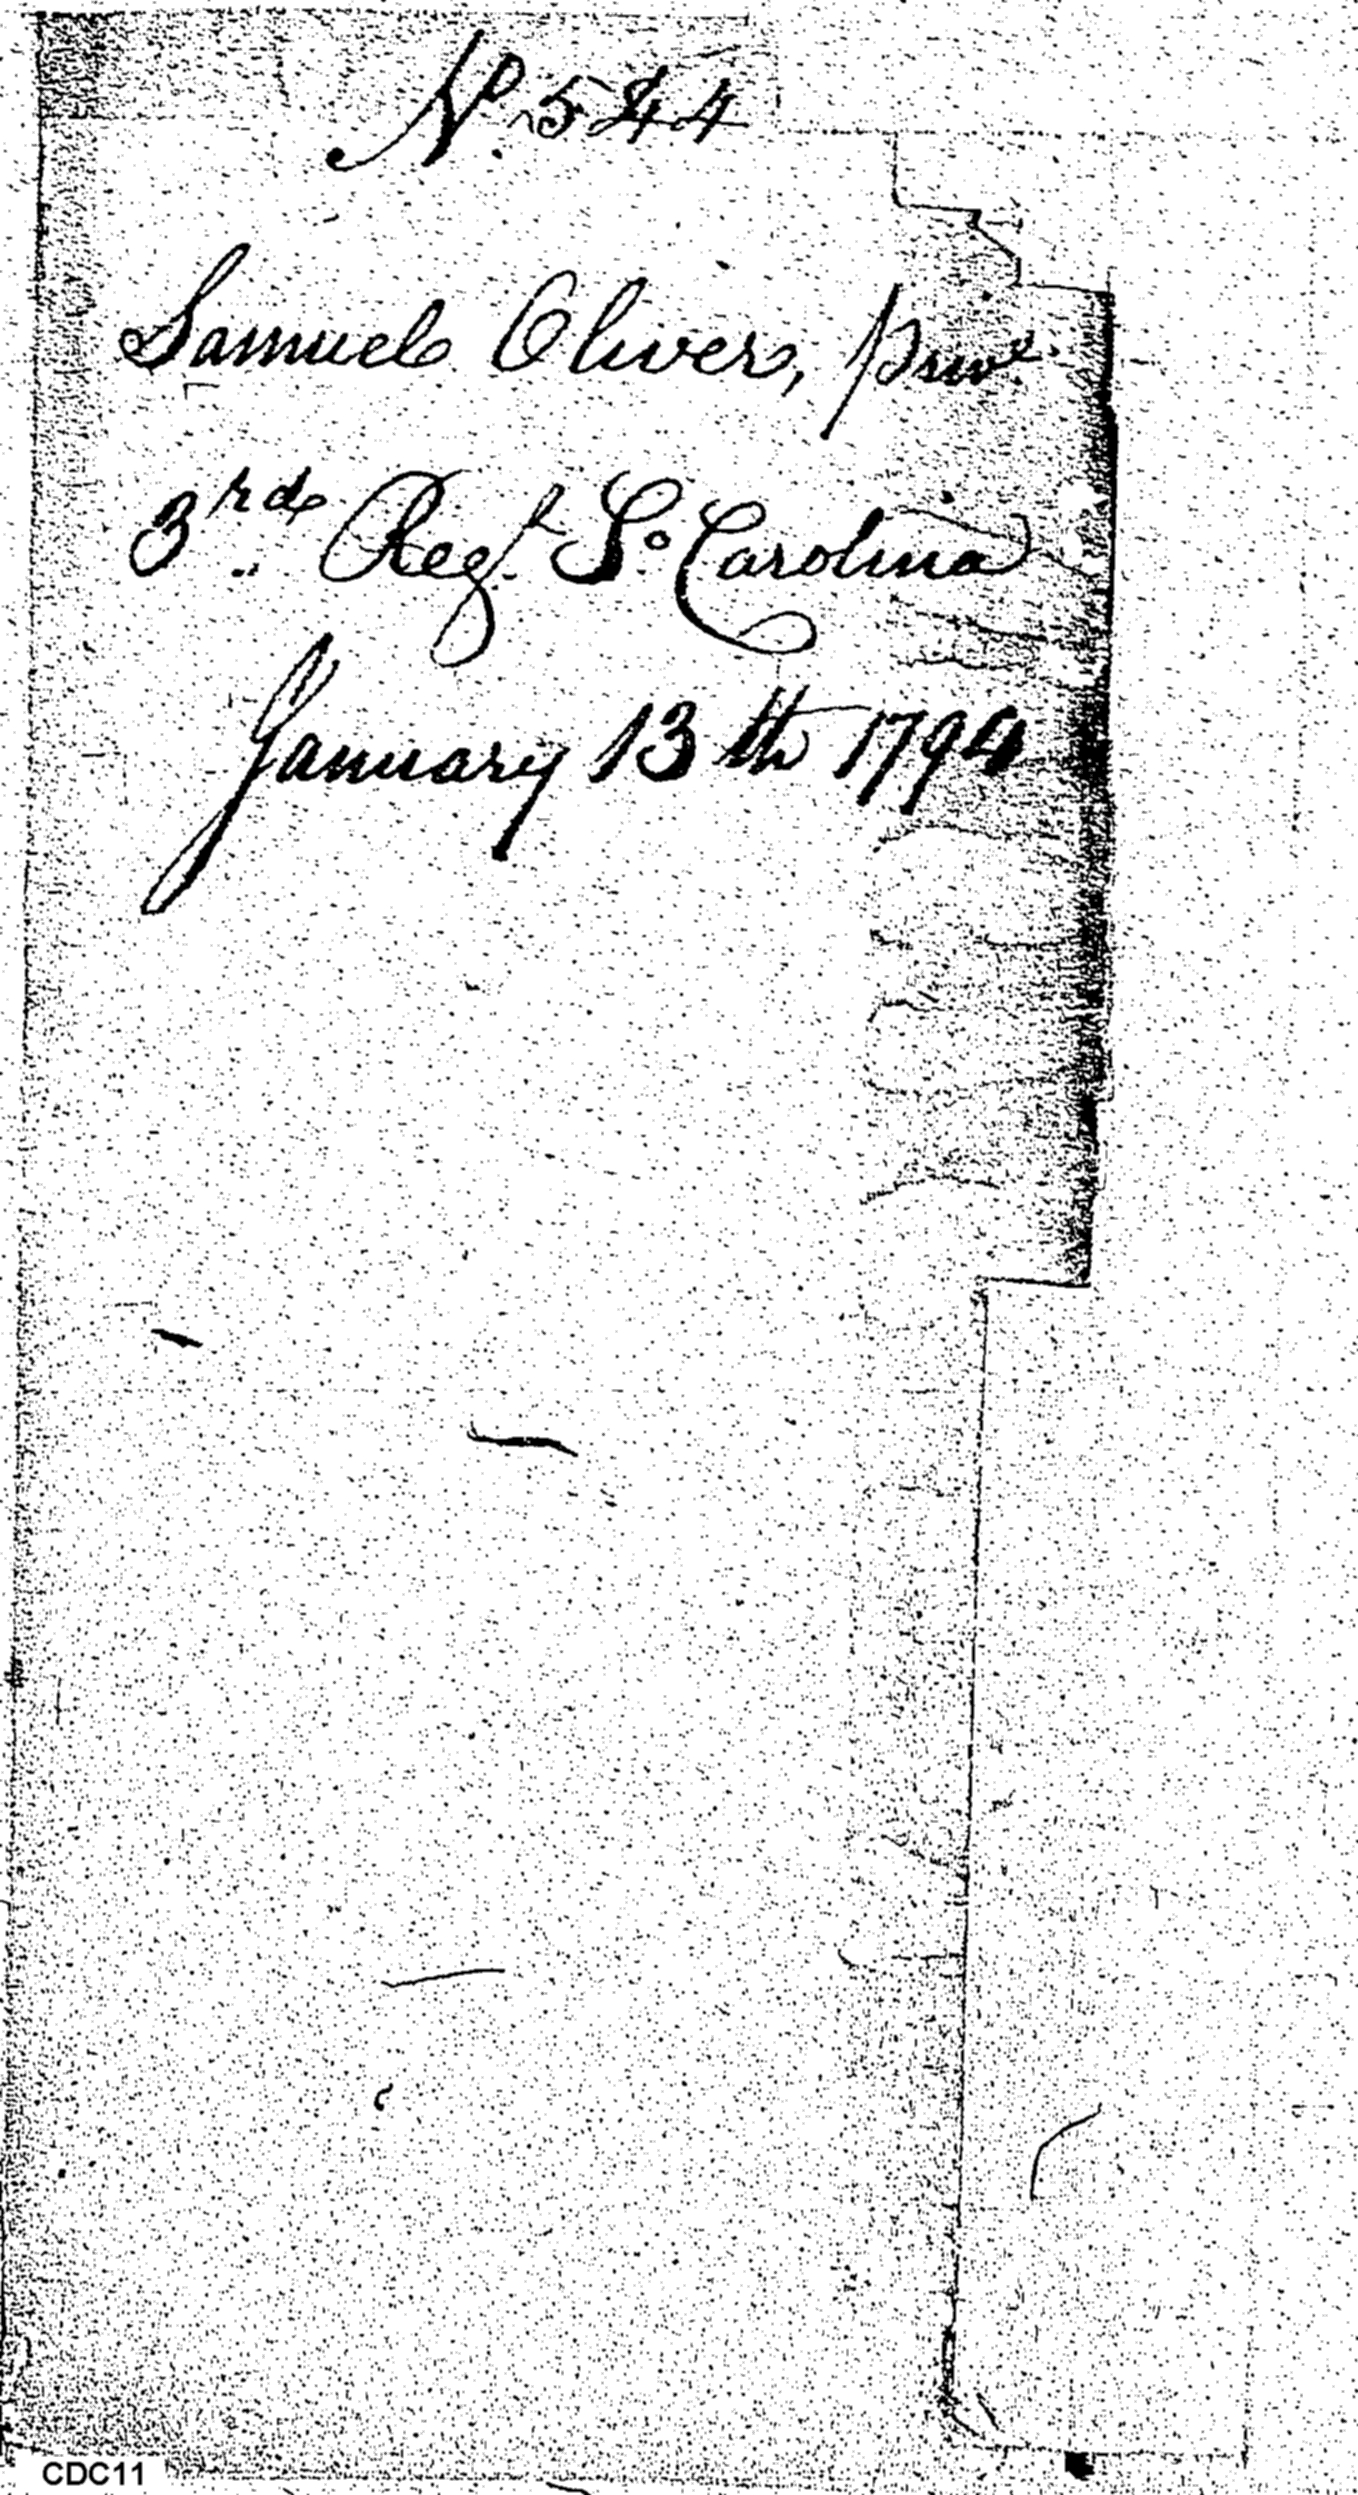 No. 544
Samuel Oliver, Prive.
3rd Regt. So. Carolina
January 13th 1794
CDC11